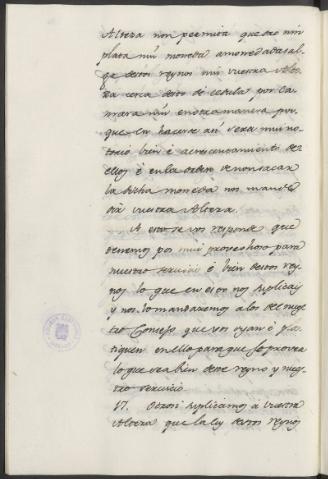 Alteza non permita que oro nin
plata nin moneda amonedada sal-
ga destos reynos nin vuestra Alte-
za cerca desto dé cedula por Ca-
mara nin en otra manera por
que en hacerse así será mui no-
torio bien é acrecentamiento de
ellos é en la orden de non sacar
la dicha moneda nos mande
dar vuestra Alteza.
A esto se vos responde que
tenemos por mui provechoso para
nuestro servicio é bien destos rey-
nos lo que en esto nos suplicais
y nos lo mandaremos a los del nues-
tro Consejo que vos oyan é pla-
tiquen en ello para que se provea
lo que sea bien deste reyno y nues-
tro servicio
17. Otrosi suplicamos a vuestra
Alteza que la ley destos reynos